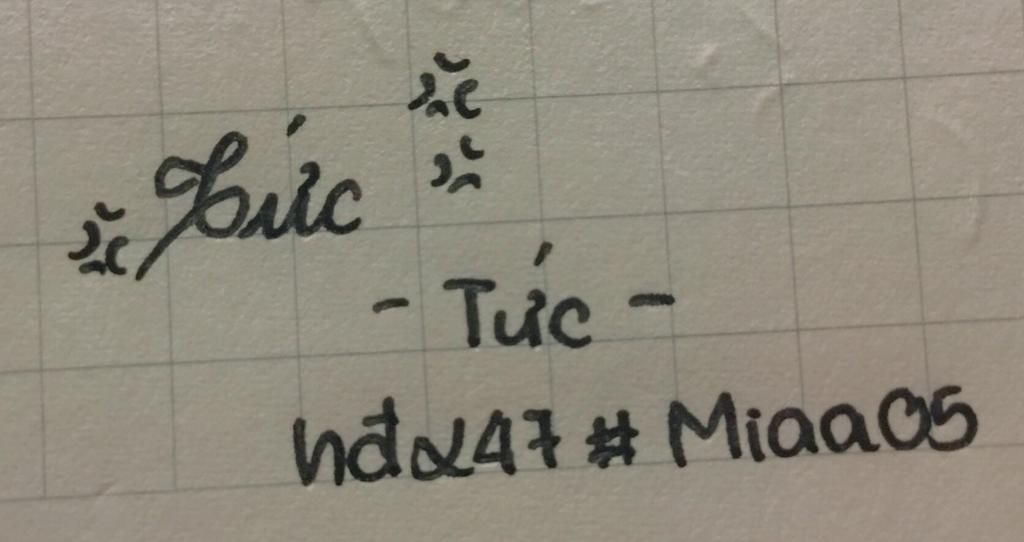 Bức
- Tức -
hdα47 # Miaa05